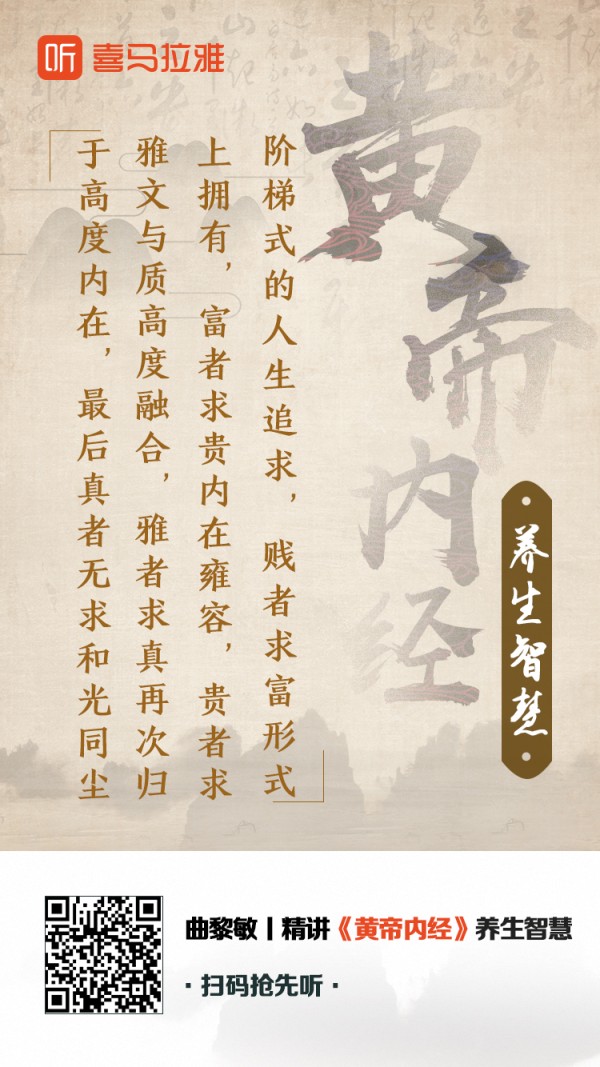 听 喜马拉雅
黄帝内经
养生智慧
阶梯式的人生追求，贱者求富形式
上拥有，富者求贵内在雍容，贵者求
雅文与质高度融合，雅者求真再次归
于高度内在，最后真者无求和光同尘
曲黎敏丨精讲《黄帝内经》养生智慧
·扫码抢先听·